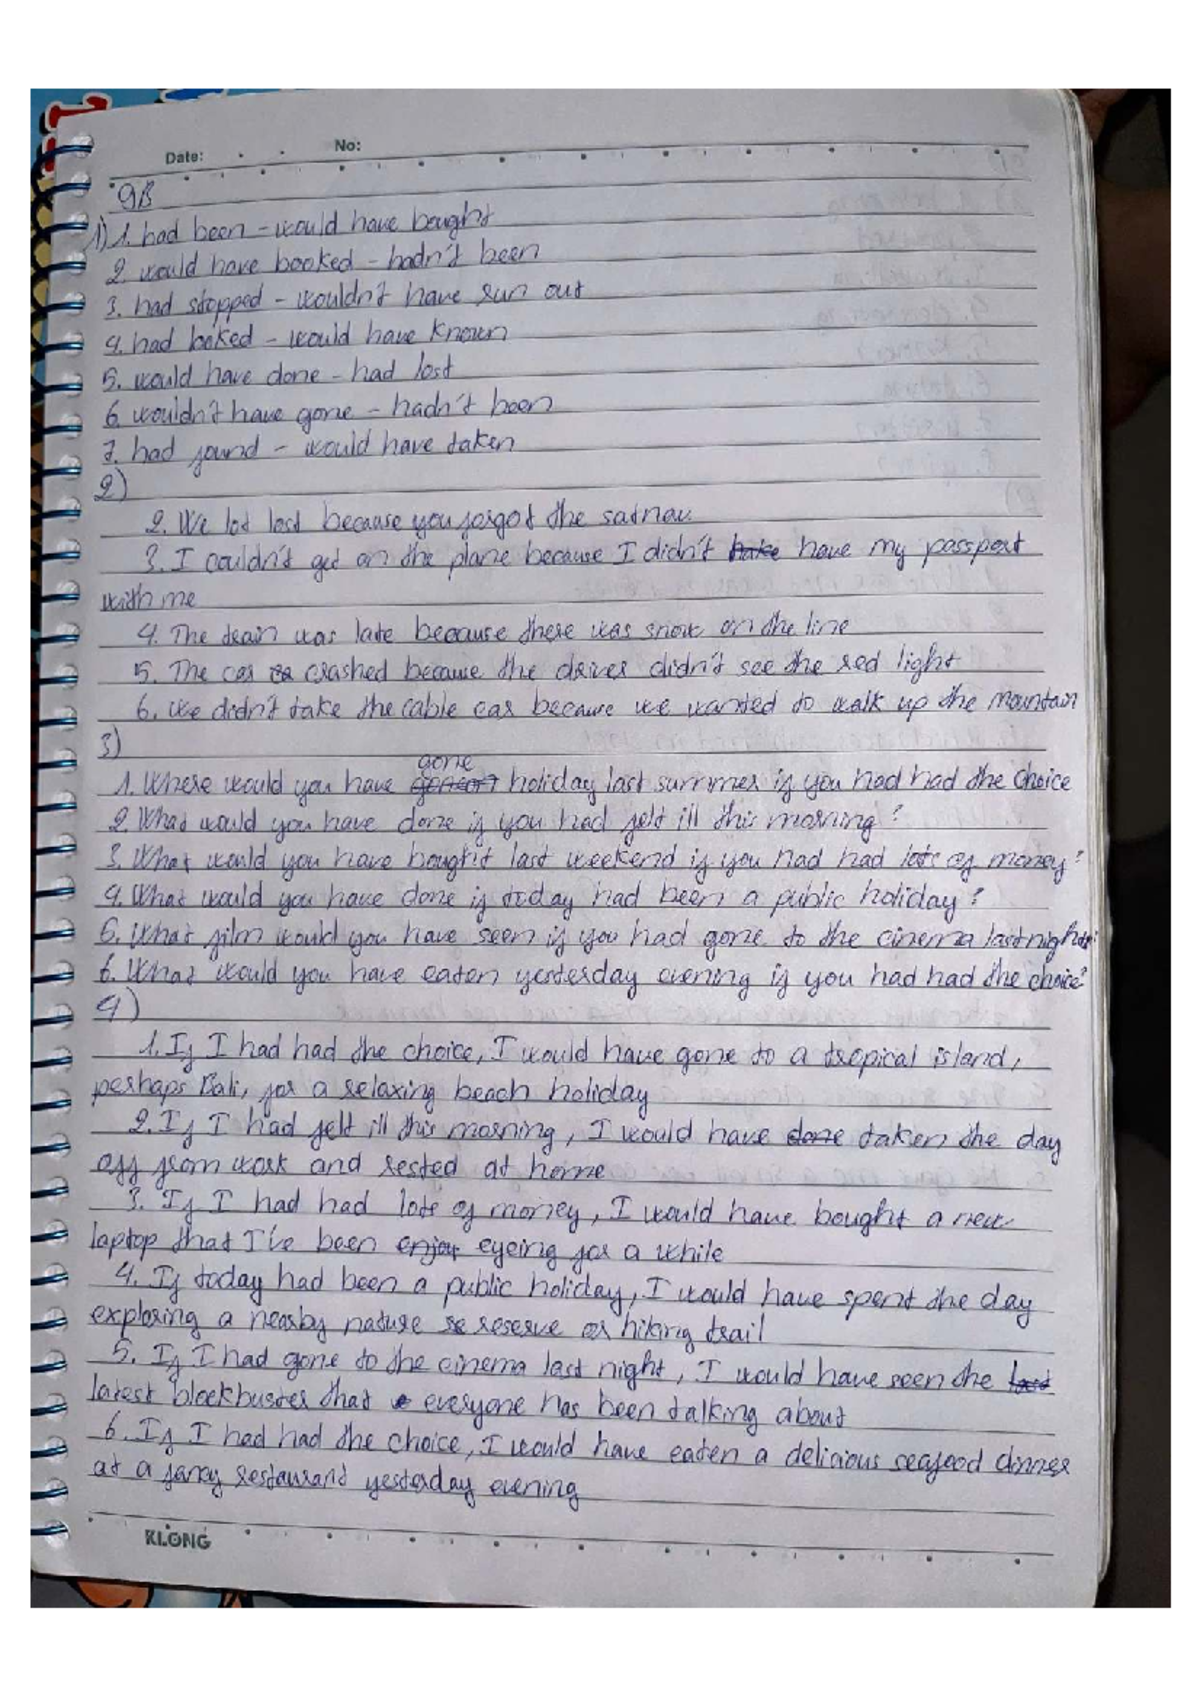 Date: No:
9B
1) 1. had been - would have bought
2. would have booked - hadn't been
3. had stopped - wouldn't have run out
4. had looked - would have known
5. would have done - had lost
6. wouldn't have gone - hadn't been
7. had found - would have taken
2)
2. We lot lost because you forgot the satnav.
3. I couldn't get on the plane because I didn't have my passport
with me
4. The train was late because there was snow on the line
5. The car crashed because the driver didn't see the red light
6. We didn't take the cable car because we wanted to walk up the mountain
3)
gone
1. Where would you have holiday last summer if you had had the choice
2. What would you have done if you had felt ill this morning?
3. What would you have bought last weekend if you had had lots of money?
4. What would you have done if today had been a public holiday?
5. What film would you have seen if you had gone to the cinema last night?
6. What would you have eaten yesterday evening if you had had the choice?
4)
1. If I had had the choice, I would have gone to a tropical island,
perhaps Bali, for a relaxing beach holiday
2. If I had felt ill this morning, I would have done taken the day
off from work and rested at home
3. If I had had lots of money, I would have bought a new
laptop that I've been enjoy eyeing for a while
4. If today had been a public holiday, I would have spent the day
exploring a nearby nature reserve or hiking trail
5. If I had gone to the cinema last night, I would have seen the
latest blockbuster that everyone has been talking about
6. If I had had the choice, I would have eaten a delicious seafood dinner
at a fancy restaurant yesterday evening
KLONG